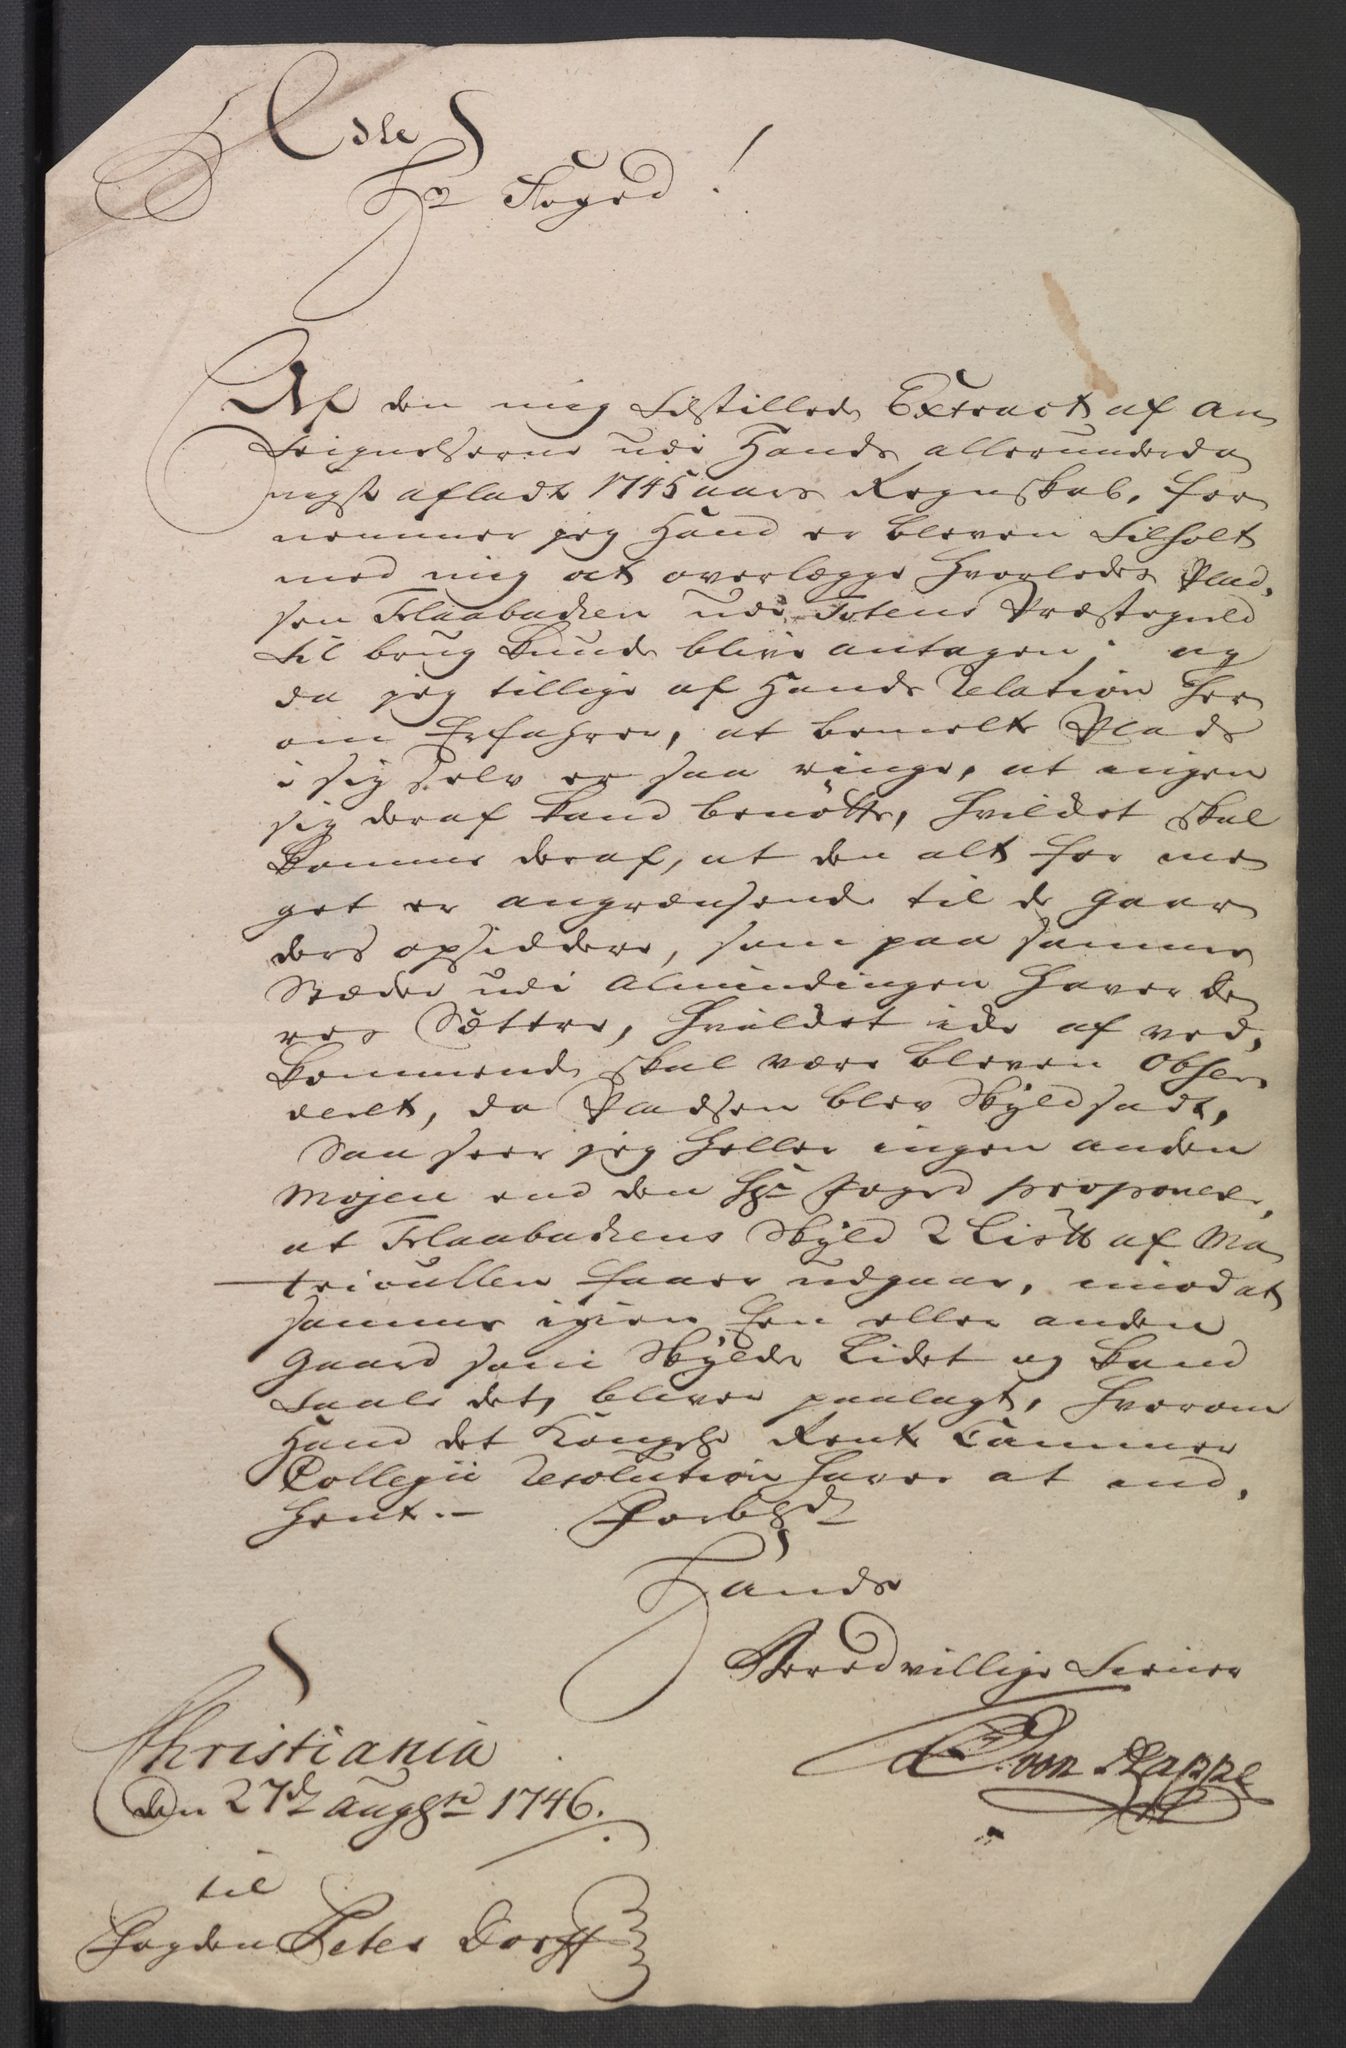 Edle
Hr Foged!
Af den mig tilstillede Extract af An
teignelserne udi Hands allerunderda
nigst afladte 1745 aars Regnskab, for
nemmer jeg Hand er bleven tilholt
med mig at overlægge hvorledes Plad,
sen Flaabachen udi Totens Præstegield
til brug kunde blive antagen; og
da jeg tillige af Hands Relation her
om Erfahrer, at bemelte Plads
i sig selv er saa ringe, at ingen
sig deraf kand benötte, hvilchet skal
komme deraf, at den alt for me
get er angrændsende til de gaar
ders opsiddere, som paa samme
Stæder udi Almindingen haver de
res Sættre, hvilchet iche af ved,
kommende skal være bleven obser
veret, da Pladsen blev Skyldsadt,
Saa seer jeg heller ingen anden
Mojen end den Hr Foged proponerer,
at Flaabachens Skyld 2 Lispd af Ma
triculen faaer udgaae, imod at
samme igien Een eller anden
Gaard som Skylder Lidet og kand
taale det, bliver paalagt, hvorom
Hand det Kongel: Rente Cammer
Collegii Resolution haver at ind,
hente.- Forblr
Hands
Beredvillige Tiener
von Rappe
Christiania
den 27de augstii 1746.
til
Fogden Peter Dorff